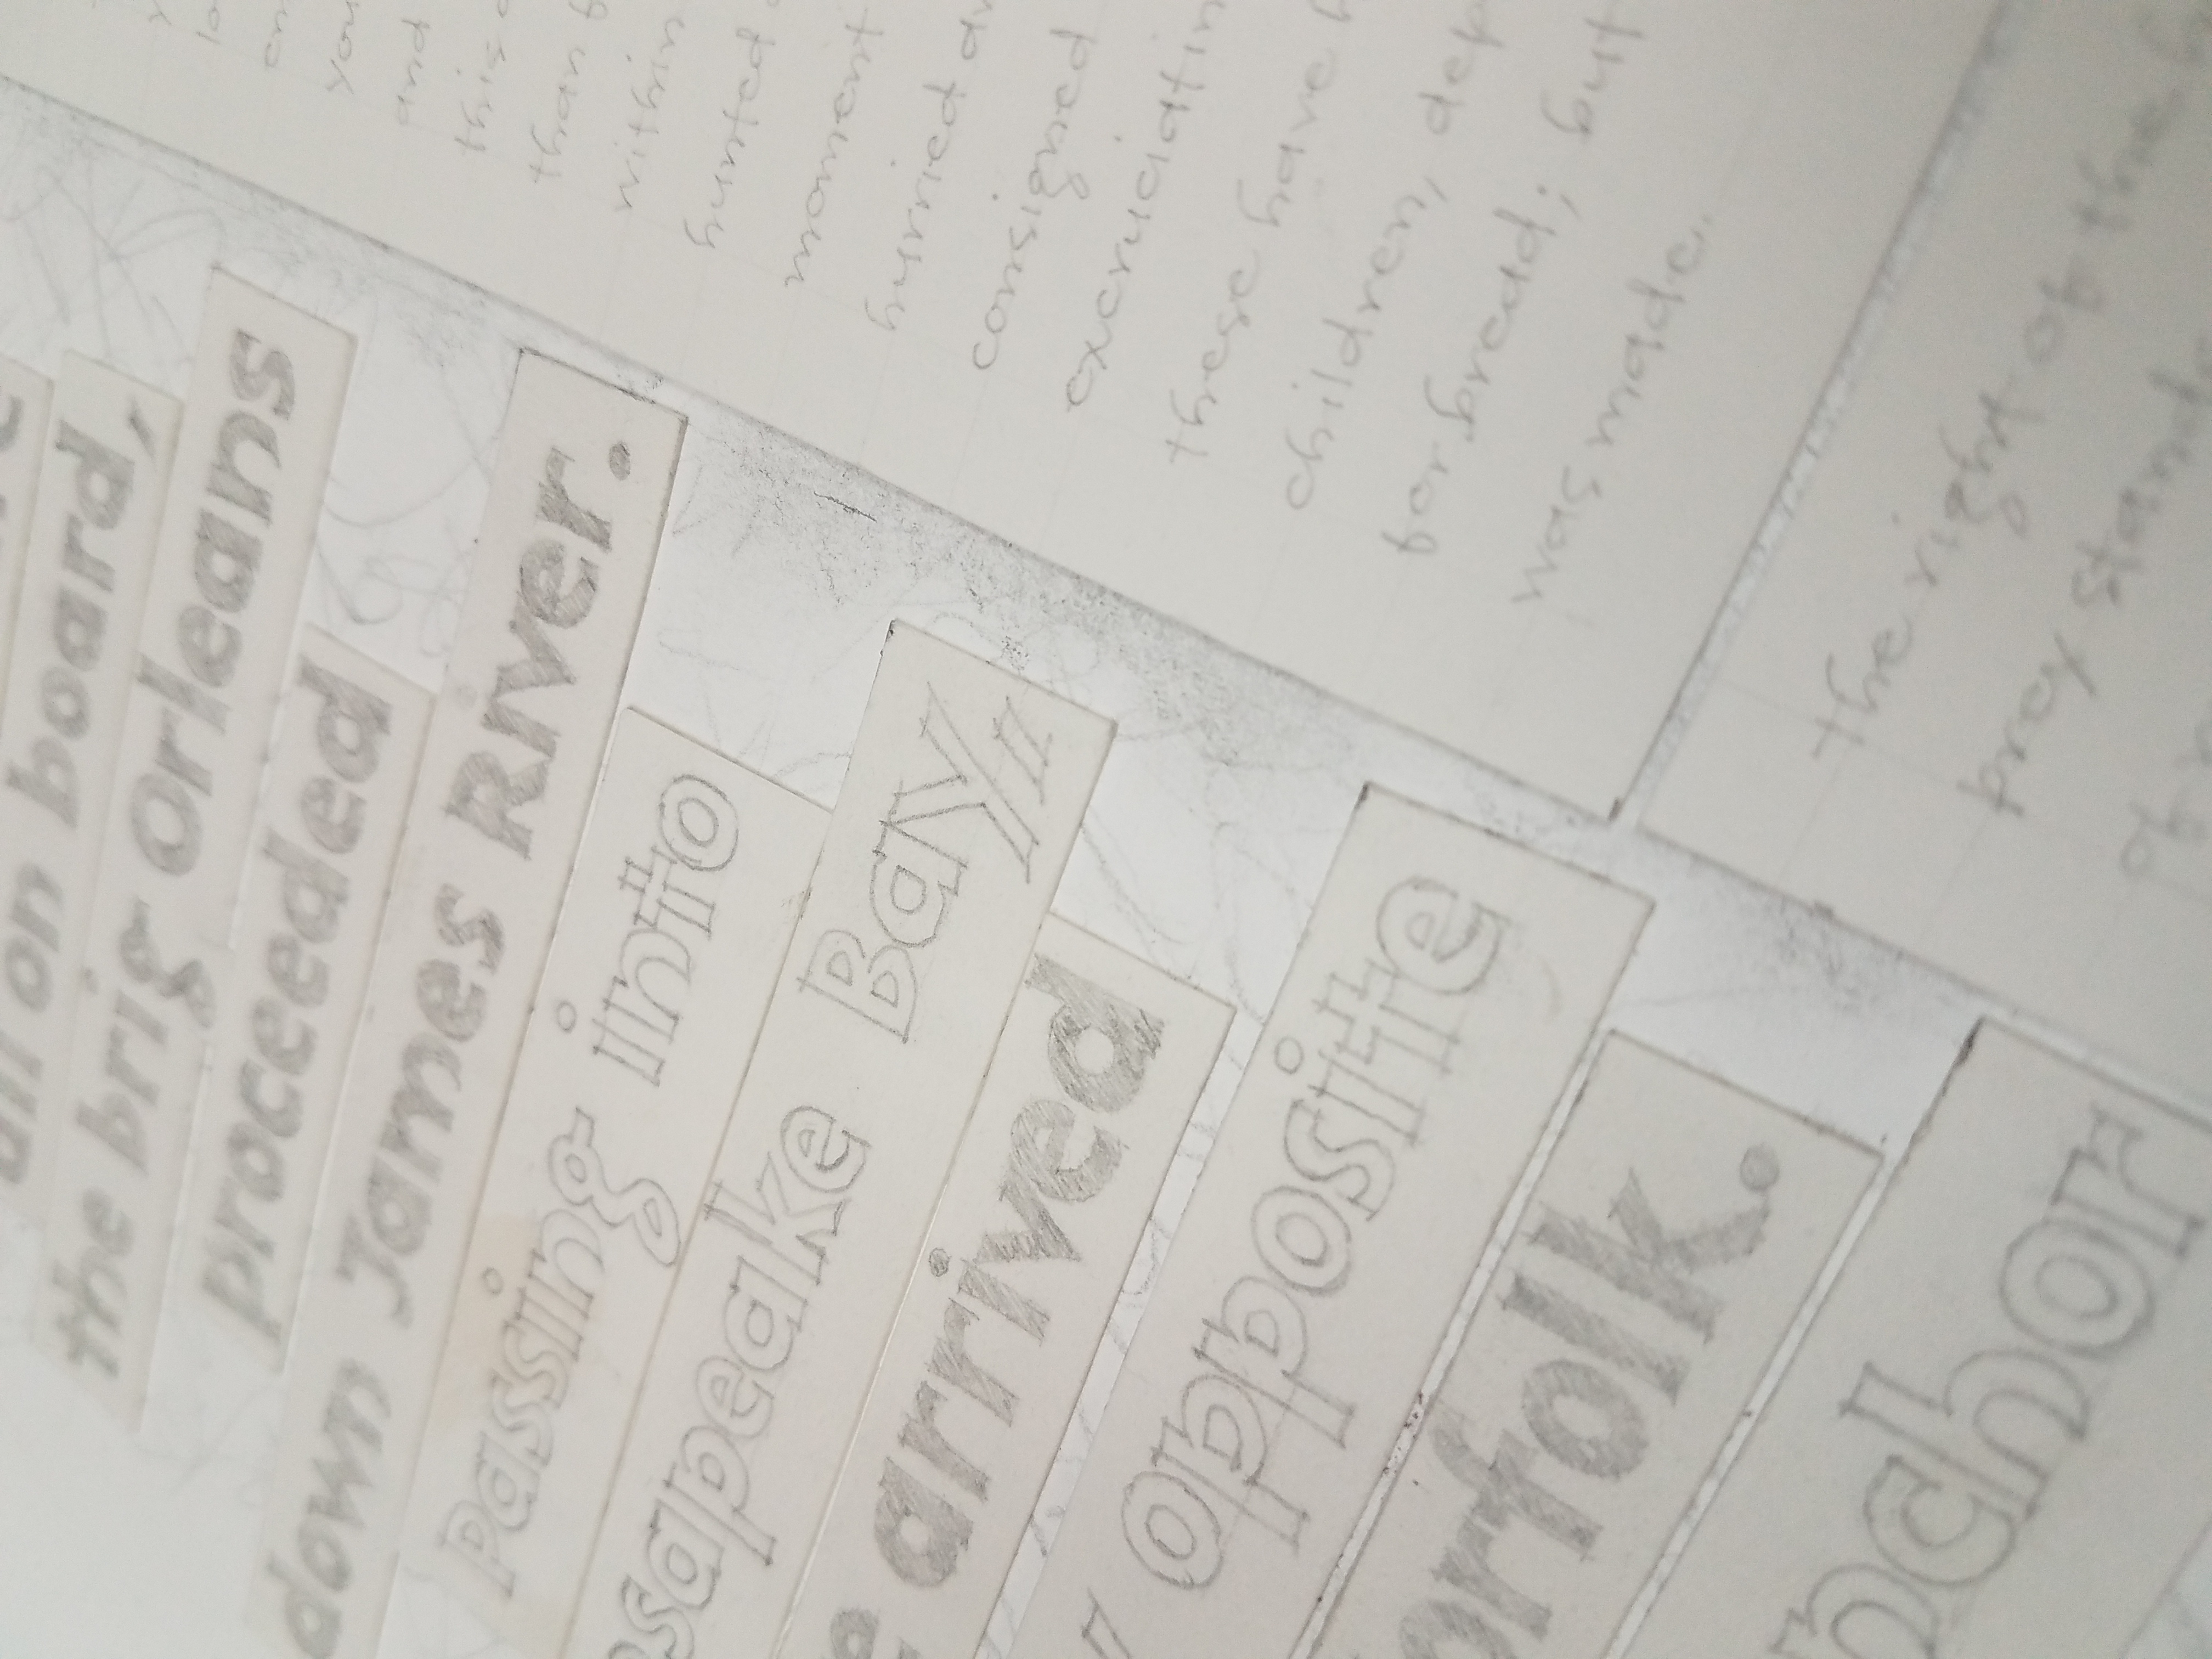 all on board,
the brig Orleans
proceeded
down James River.
Passing into
sapeake Bay,
arrived
opposite
orfolk.
nchor
you
and
this
than
within
hunted
moment
hurried
consigned
excruciatin
these have
children, dep
for bread; but
was made.
the right of the
prey stand